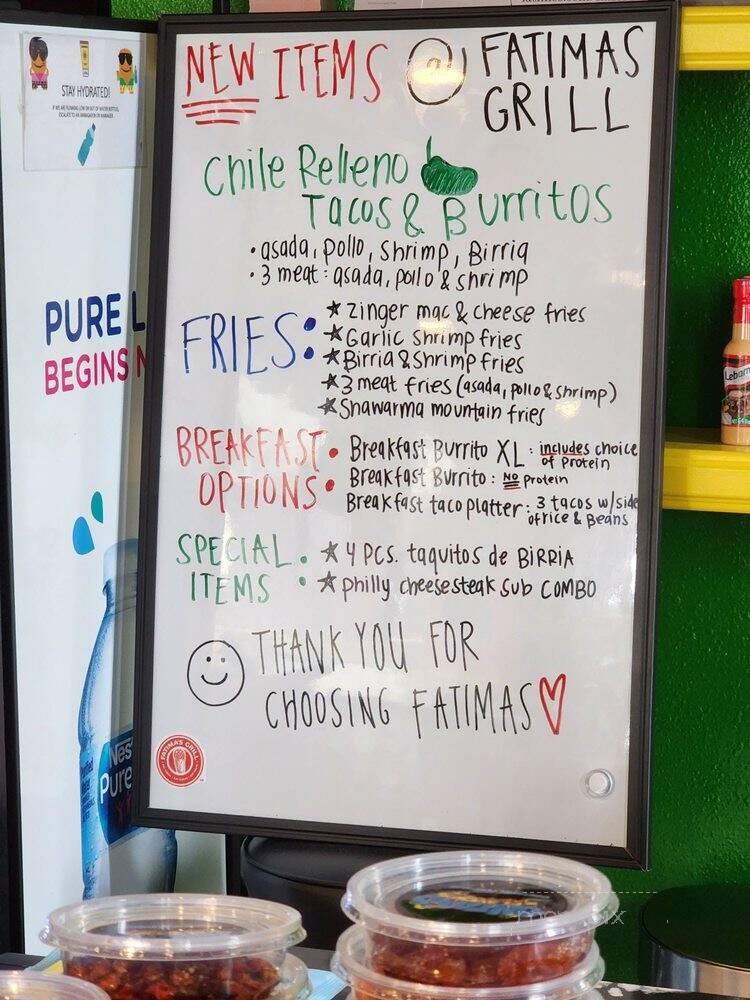 STAY HYDRATED!
NEW ITEMS @ FATIMAS
GRILL
Chile Relleno
Tacos & Burritos
• asada, pollo, shrimp, Birria
• 3 meat : asada, pollo & shrimp
FRIES:
★ Zinger mac & cheese fries
★ Garlic shrimp fries
★ Birria & Shrimp fries
★ 3 meat fries (asada, pollo & shrimp)
★ Shawarma mountain fries
BREAKFAST
OPTIONS:
Breakfast Burrito XL : includes choice
of Protein
Breakfast Burrito : NO protein
Breakfast taco platter : 3 tacos w/side
of rice & Beans
SPECIAL
ITEMS :
★ 4 PCS. taquitos de BIRRIA
★ philly cheesesteak sub COMBO
THANK YOU FOR
CHOOSING FATIMAS
FATIMA'S GRILL
PURE L
BEGINS
Nes
Pure